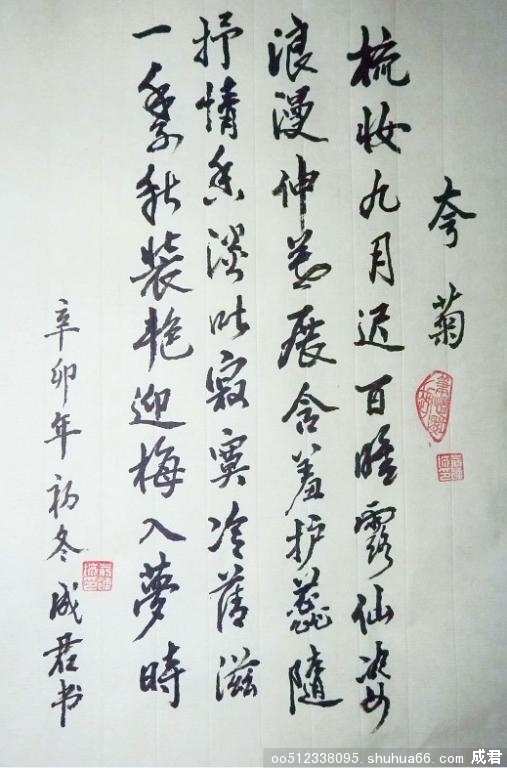 夸菊
梳妆九月迟百瞻露仙姿
浪漫伸展含羞护蕊随
抒情香淡吐寂寞冷滋
一季秋装艳迎梅入夢時
辛卯年初冬成君书
oo512338095. shuhua66. com 成君